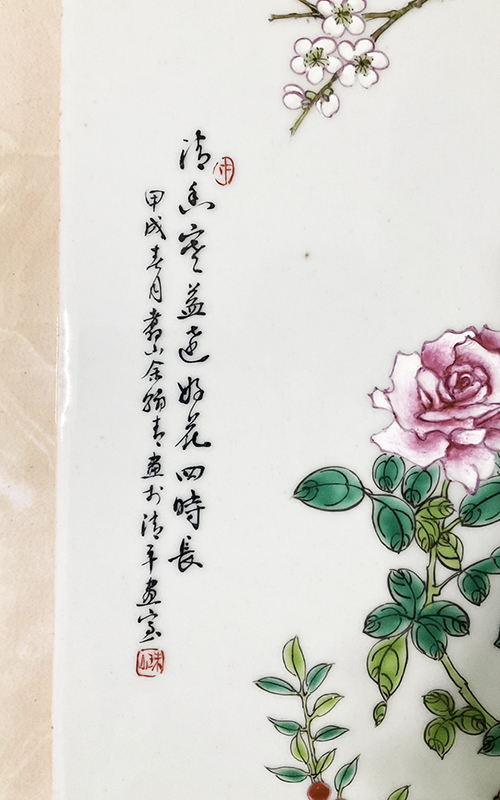 清香寒益遠好花四時長
甲戌春月山余翰青畫於清平畫室